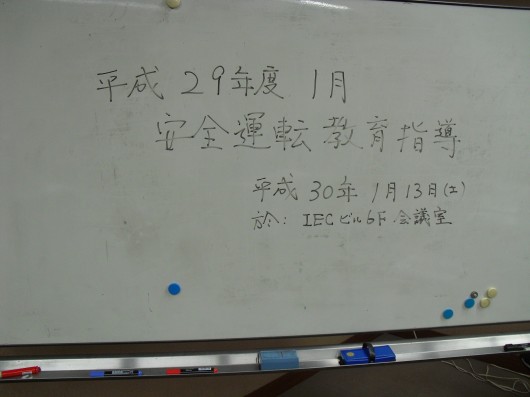 平成 29年度 1月
安全運転教育指導
平成 30年 1月13日(土)
於: IECビル6F 会議室